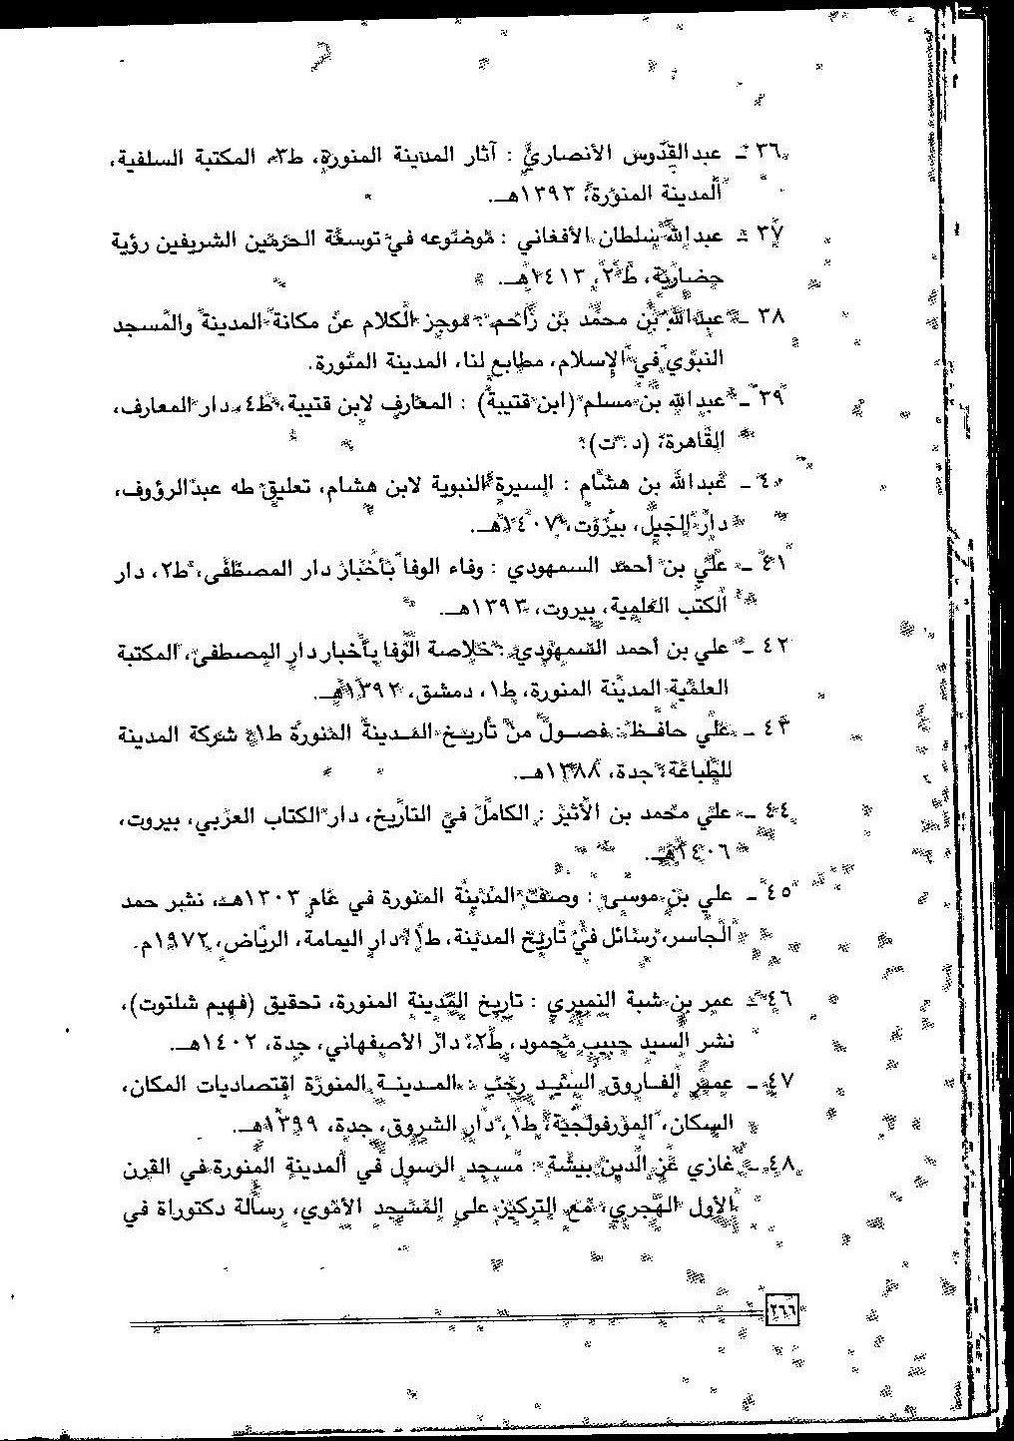 ٣٦ ـ عبدالقدّوس الأنصاري : آثار المدينة المنورة، ط٣، المكتبة السلفية،
المدينة المنورة، ١٣٩٣هـ.
٣٧ ـ عبدالله سلطان الأفغاني : موضوعه في توسعة الحرمين الشريفين رؤية
حضارية، ط٢، ١٤١٣هـ.
٣٨ ـ عبدالله بن محمد بن زاحم : موجز الكلام عن مكانة المدينة والمسجد
النبوي في الإسلام، مطابع لنا، المدينة المنورة.
٣٩ ـ عبدالله بن مسلم (ابن قتيبة) : المعارف لابن قتيبة، ط٤، دار المعارف،
القاهرة، (د.ت).
٤٠ ـ عبدالله بن هشام : السيرة النبوية لابن هشام، تعليق طه عبدالرؤوف،
دار الجيل، بيروت، ١٤٠٧هـ.
٤١ ـ علي بن أحمد السمهودي : وفاء الوفا بأخبار دار المصطفى، ط٢، دار
الكتب العلمية، بيروت، ١٣٩٣هـ.
٤٢ ـ علي بن أحمد السمهودي : خلاصة الوفا بأخبار دار المصطفى، المكتبة
العلمية المدينة المنورة، ط١، دمشق، ١٣٩٢هـ.
٤٣ ـ علي حافظ : فصول من تاريخ المدينة المنورة ط١، شركة المدينة
للطباعة، جدة، ١٣٨٨هـ.
٤٤ ـ علي محمد بن الأثير : الكامل في التاريخ، دار الكتاب العربي، بيروت،
١٤٠٦هـ.
٤٥ ـ علي بن موسى : وصف المدينة المنورة في عام ١٣٠٣هـ، نشر حمد
الجاسر، رسائل في تاريخ المدينة، ط١، دار اليمامة، الرياض، ١٩٧٢م.
٤٦ ـ عمر بن شبة النميري : تاريخ المدينة المنورة، تحقيق (فهيم شلتوت)،
نشر السيد حبيب محمود، ط٢، دار الأصفهاني، جدة، ١٤٠٢هـ.
٤٧ ـ عمر الفاروق السيد رجب : المدينة المنورة اقتصاديات المكان،
السكان، المورفولجية، ط١، دار الشروق، جدة، ١٣٩٩هـ.
٤٨ ـ غازي عز الدين بيشة : مسجد الرسول في المدينة المنورة في القرن
الأول الهجري، مع التركيز على المسجد الأموي، رسالة دكتوراة في
٢٦٦